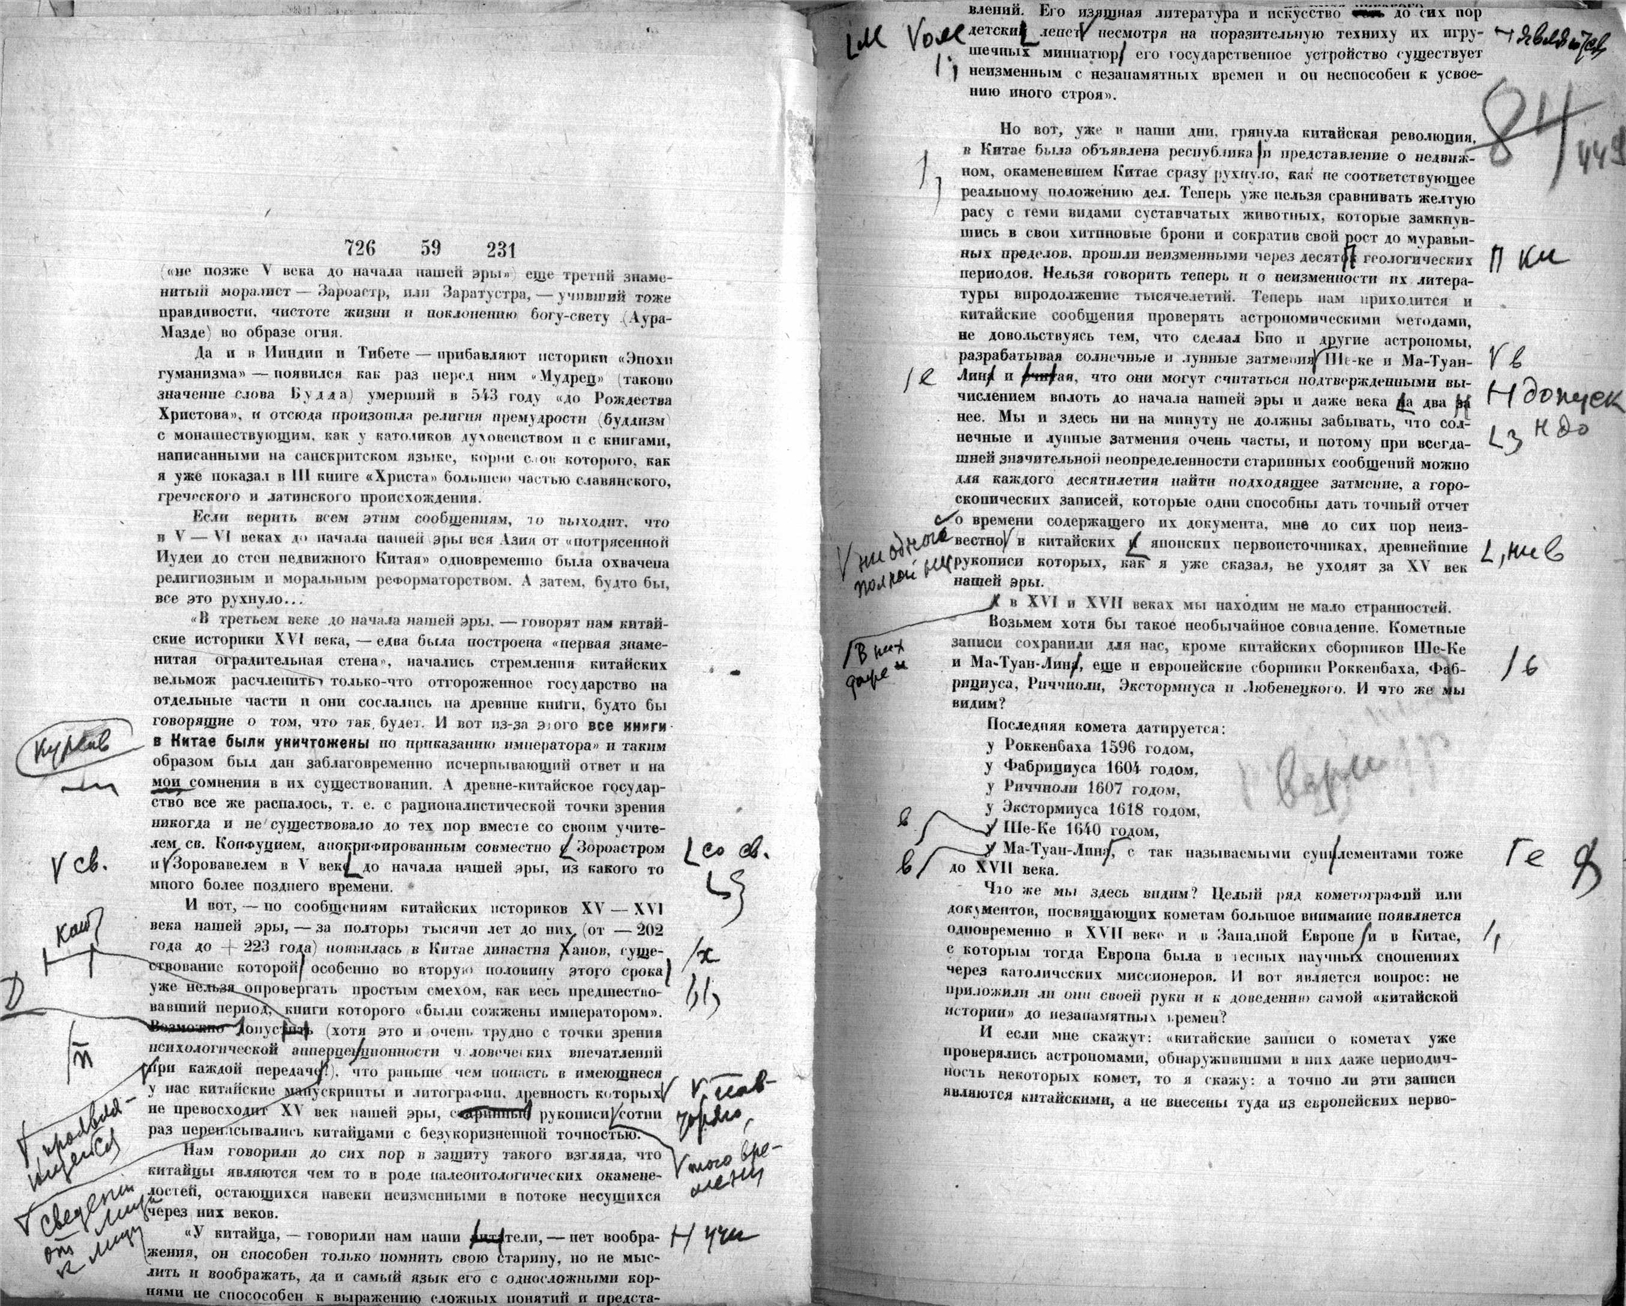 726 59 231
(«не позже V века до начала нашей эры») еще третий знаме-
нитый моралист — Зароастр, или Заратустра, — учивший тоже
правдивости, чистоте жизни и поклонению богу-свету (Аура-
Мазде) во образе огня.
Да и в Индии и Тибете — прибавляют историки «Эпохи
гуманизма» — появился как раз перед ним «Мудрец» (таково
значение слова Будда) умерший в 543 году «до Рождества
Христова», и отсюда произошла религия премудрости (буддизм)
с монашествующим, как у католиков духовенством и с книгами,
написанными на санскритском языке, корни слов которого, как
я уже показал в III книге «Христа» большею частью славянского,
греческого и латинского происхождения.
Если верить всем этим сообщениям, то выходит, что
в V — VI веках до начала нашей эры вся Азия от «потрясенной
Иудеи до стен недвижного Китая» одновременно была охвачена
религиозным и моральным реформаторством. А затем, будто бы,
все это рухнуло...
«В третьем веке до начала нашей эры, — говорят нам китай-
ские историки XVI века, — едва была построена «первая знаме-
нитая оградительная стена», начались стремления китайских
вельмож расчленить только-что отгороженное государство на
отдельные части и они сослались на древние книги, будто бы
говорящие о том, что так будет. И вот из-за этого все книги
в Китае были уничтожены по приказанию императора» и таким
образом был дан заблаговременно исчерпывающий ответ и на
мои сомнения в их существовании. А древне-китайское государ-
ство все же распалось, т. е. с рационалистической точки зрения
никогда и не существовало до тех пор вместе со своим учите-
лем св. Конфуцием, апокрифированным совместно Зороастром
и Зоровавелем в V век до начала нашей эры, из какого то
много более позднего времени.
И вот, — по сообщениям китайских историков XV — XVI
века нашей эры, — за полторы тысячи лет до них (от — 202
года до + 223 года) появилась в Китае династия Ханов, суще-
ствование которой особенно во вторую половину этого срока
уже нельзя опровергать простым смехом, как весь предшество-
вавший период, книги которого «были сожжены императором».
Возможно допустить (хотя это и очень трудно с точки зрения
психологической апперцепционности человеческих впечатлений
при каждой передаче!), что раньше чем попасть в имеющиеся
у нас китайские манускрипты и литографии, древность которых
не превосходит XV век нашей эры, старинные рукописи сотни
раз переписывались китайцами с безукоризненной точностью.
Нам говорили до сих пор в защиту такого взгляда, что
китайцы являются чем то в роде палеонтологических окамене-
лостей, остающихся навеки неизменными в потоке несущихся
через них веков.
«У китайца, — говорили нам наши читатели, — нет вообра-
жения, он способен только помнить свою старину, но не мыс-
лить и воображать, да и самый язык его с односложными кор-
нями не способен к выражению сложных понятий и предста-
курсив
V св.
L со св.
/х
/п
V прояв
ляющейся
V сведени
от лица
к лицу
V пов-
торяю,
V того вре-
мени
Н учи
влений. Его изящная литература и искусство до сих пор
детский лепет несмотря на поразительную технику их игру-
шечных миниатюр его государственное устройство существует
неизменным с незапамятных времен и он неспособен к усвое-
нию иного строя».
Но вот, уже в наши дни, грянула китайская революция,
в Китае была объявлена республика и представление о недвиж-
ном, окаменевшем Китае сразу рухнуло, как не соответствующее
реальному положению дел. Теперь уже нельзя сравнивать желтую
расу с теми видами суставчатых животных, которые замкнув-
шись в свои хитиновые брони и сократив свой рост до муравьи-
ных пределов, прошли неизменными через десятки геологических
периодов. Нельзя говорить теперь и о неизменности их литера-
туры впродолжение тысячелетий. Теперь нам приходится и
китайские сообщения проверять астрономическими методами,
не довольствуясь тем, что сделал Био и другие астрономы,
разрабатывая солнечные и лунные затмения Ше-ке и Ма-Туан-
Лина и считая, что они могут считаться подтвержденными вы-
числением вплоть до начала нашей эры и даже века на два за
нее. Мы и здесь ни на минуту не должны забывать, что сол-
нечные и лунные затмения очень часты, и потому при всегда-
шней значительной неопределенности старинных сообщений можно
для каждого десятилетия найти подходящее затмение, а горо-
скопических записей, которые одни способны дать точный отчет
о времени содержащего их документа, мне до сих пор неиз-
вестно в китайских и японских первоисточниках, древнейшие
рукописи которых, как я уже сказал, не уходят за XV век
нашей эры.
А в XVI и XVII веках мы находим не мало странностей.
Возьмем хотя бы такое необычайное совпадение. Кометные
записи сохранили для нас, кроме китайских сборников Ше-Ке
и Ма-Туан-Лина, еще и европейские сборники Роккенбаха, Фаб-
рициуса, Риччиоли, Экстормиуса и Любенецкого. И что же мы
видим?
Последняя комета датируется:
у Роккенбаха 1596 годом,
у Фабрициуса 1604 годом,
у Риччиоли 1607 годом,
у Экстормиуса 1618 годом,
у Ше-Ке 1640 годом,
у Ма-Туан-Лина, с так называемыми суплементами тоже
до XVII века.
Что же мы здесь видим? Целый ряд кометографий или
документов, посвящающих кометам большое внимание появляется
одновременно в XVII веке и в Западной Европе и в Китае,
с которым тогда Европа была в тесных научных сношениях
через католических миссионеров. И вот является вопрос: не
приложили ли они своей руки и к доведению самой «китайской
истории» до незапамятных времен?
И если мне скажут: «китайские записи о кометах уже
проверялись астрономами, обнаружившими в них даже периодич-
ность некоторых комет, то я скажу: а точно ли эти записи
являются китайскими, а не внесены туда из европейских перво-
Lм Vом
Н являются
84
449
П ки
V в
/е
Н допуск
L з Н до
V ни одного
полной
L, ни в
/В них
даже и
/в
в
в
Ге ф